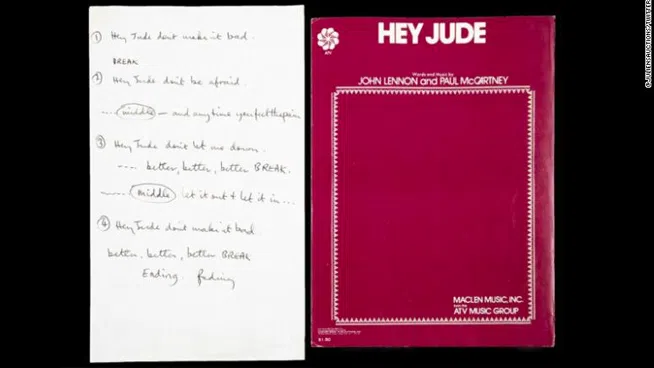 ① Hey Jude don't make it bad.
BREAK
② Hey Jude don't be afraid.
.... middle — and anytime you feel the pain
③ Hey Jude don't let me down.
---- better, better, better BREAK.
middle let it out & let it in ...
④ Hey Jude don't make it bad
better, better, better BREAK
Ending. fading
ATV
HEY JUDE
Words and Music by
JOHN LENNON and PAUL McCARTNEY
MACLEN MUSIC, INC.
ATV MUSIC GROUP
$1.50
©JULIENS AUCTIONS/TWITTER